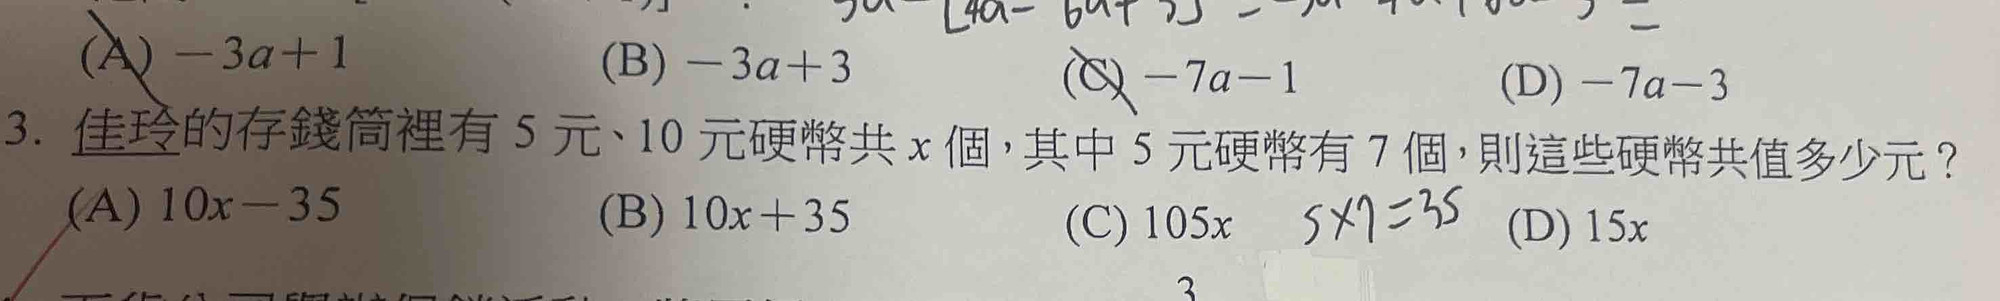 (A) −3a+1 (B) −3a+3 (C) −7a−1 (D) −7a−3
3. 佳玲的存錢筒裡有 5 元、10 元硬幣共 x 個，其中 5 元硬幣有 7 個，則這些硬幣共值多少元？
(A) 10x−35 (B) 10x+35 (C) 105x 5×7=35 (D) 15x
3